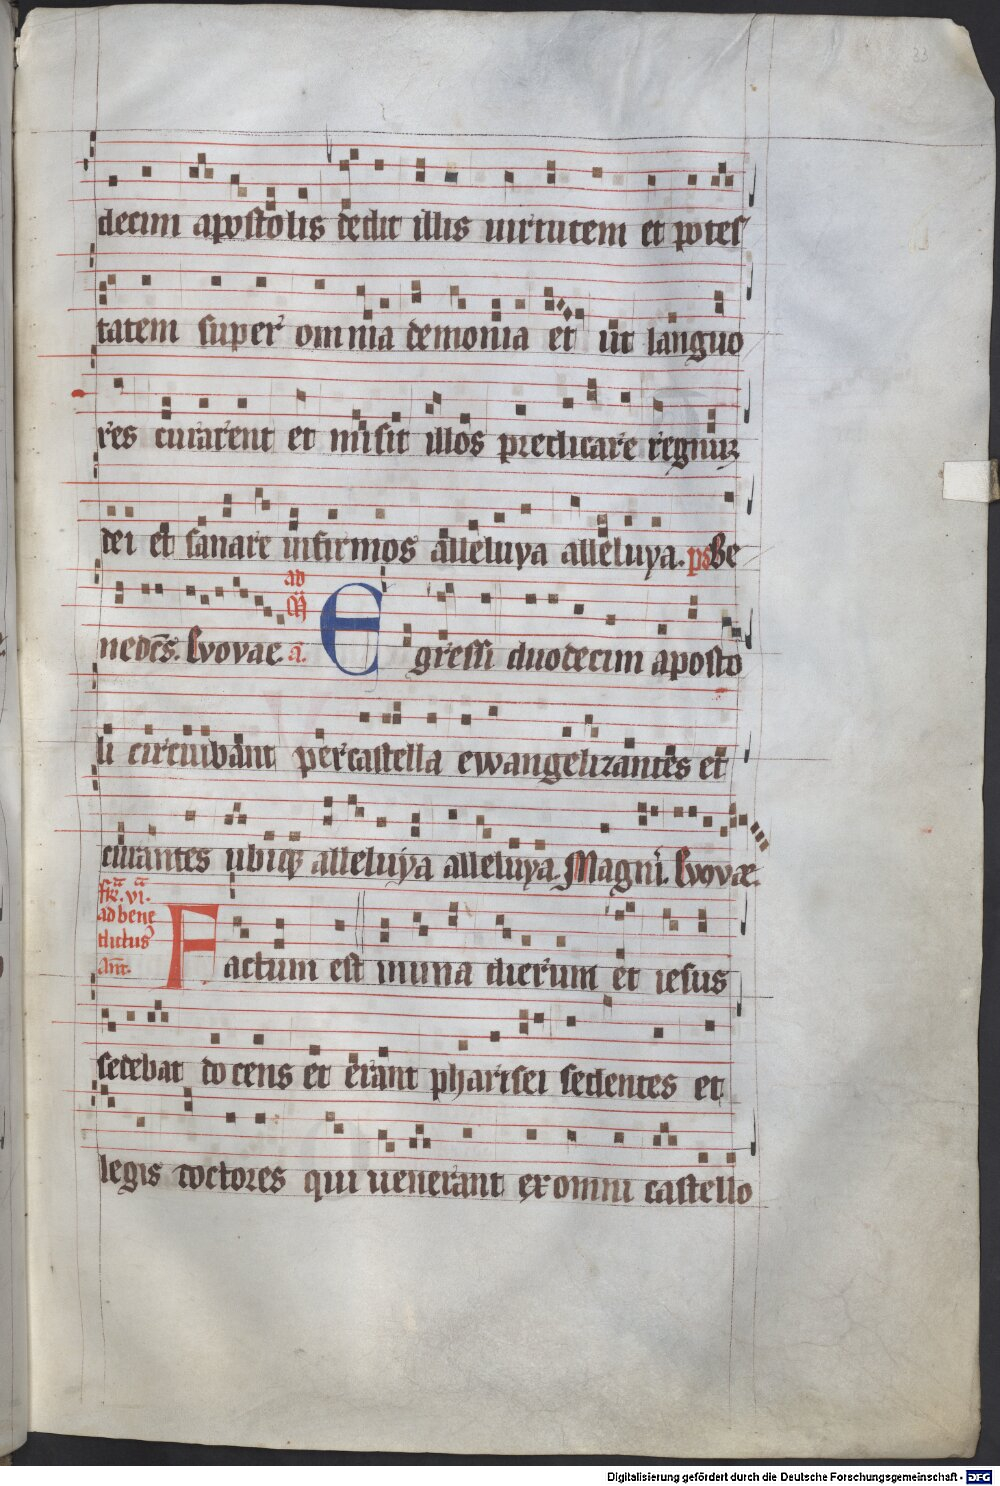 33
decim apostolis dedit illis uirtutem et potes
tatem super omnia demonia et ut languo
res curarent et misit illos predicare regnum
dei et sanare infirmos alleluya alleluya. ps Be
nedc̄s. Evovae. ad M̄ a. Egressi duodecim aposto
li circuibant per castella ewangelizantes et
curantes ubiq; alleluya alleluya. Magni. Evovae.
fr̄. vi. ad bene dictus An̄t. Factum est in una dierum et iesus
sedebat docens et erant pharisei sedentes et
legis doctores qui uenerant ex omni castello
Digitalisierung gefördert durch die Deutsche Forschungsgemeinschaft - DFG